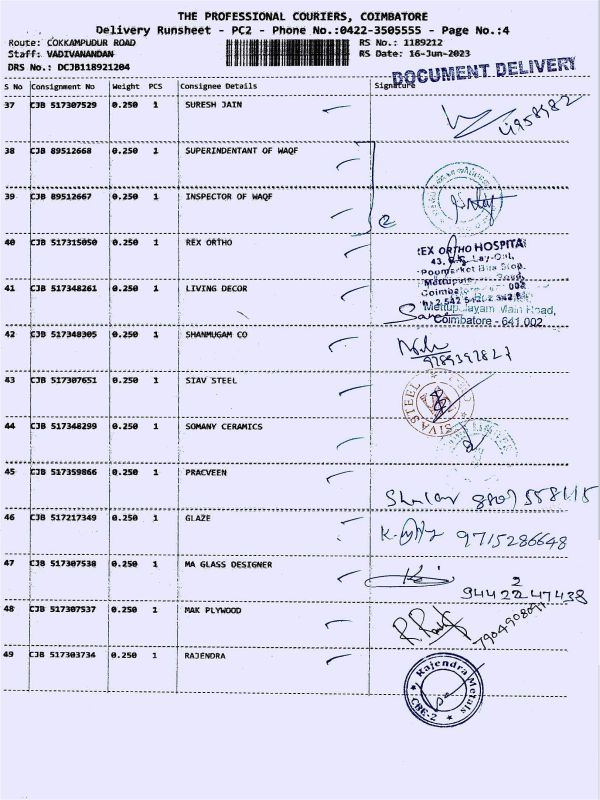 THE PROFESSIONAL COURIERS, COIMBATORE
Delivery Runsheet - PC2 - Phone No.:0422-3505555 - Page No.:4
Route: COKKAMPUDUR ROAD RS No.: 1189212
Staff: VADIVANANDAN RS Date: 16-Jun-2023
DRS No.: DCJB118921204
DOCUMENT DELIVERY
S No Consignment No Weight PCS Consignee Details Signature
37 CJB 517307529 0.250 1 SURESH JAIN
38 CJB 89512668 0.250 1 SUPERINDENTANT OF WAQF
39 CJB 89512667 0.250 1 INSPECTOR OF WAQF
2
40 CJB 517315050 0.250 1 REX ORTHO
REX ORTHO HOSPITAL
43, Lay-Out,
Poomarket Bus Stop,
Mettupalayam Road,
41 CJB 517348261 0.250 1 LIVING DECOR
Mettupalayam Main Road,
Coimbatore - 641 002
42 CJB 517348305 0.250 1 SHANMUGAM CO
43 CJB 517307651 0.250 1 SIAV STEEL
SIVA STEEL
44 CJB 517348299 0.250 1 SOMANY CERAMICS
45 CJB 517359866 0.250 1 PRACVEEN
46 CJB 517217349 0.250 1 GLAZE
9715286648
47 CJB 517307538 0.250 1 MA GLASS DESIGNER
48 CJB 517307537 0.250 1 MAK PLYWOOD
49 CJB 517303734 0.250 1 RAJENDRA
Rajendra Metals
CBE-2